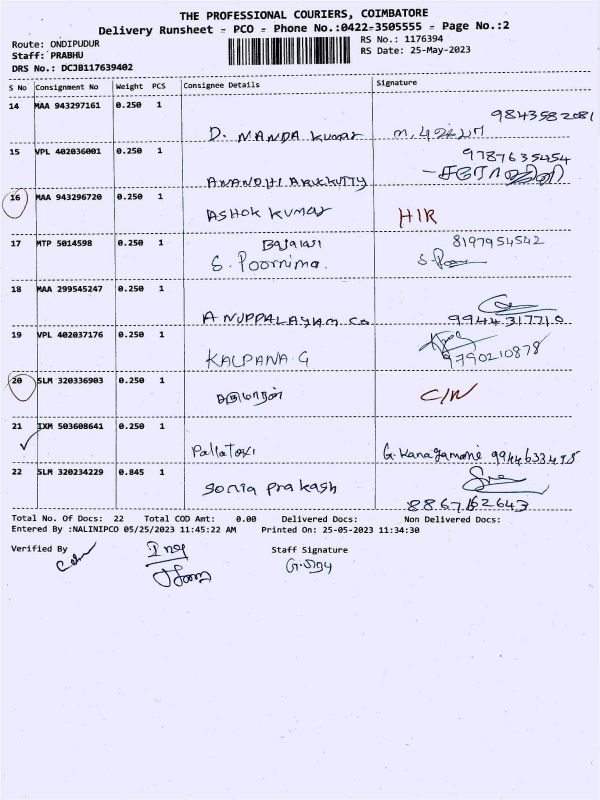 THE PROFESSIONAL COURIERS, COIMBATORE
Delivery Runsheet - PCO - Phone No.:0422-3505555 - Page No.:2
Route: ONDIPUDUR
RS No.: 1176394
Staff: PRABHU
RS Date: 25-May-2023
DRS No.: DCJB117639402
S No Consignment No Weight PCS Consignee Details Signature
14 MAA 943297161 0.250 1
9843582081
D. NANDA Kumar
15 VPL 402036001 0.250 1
9787635454
ANANDHI ARUKKUTTY
16 MAA 943296720 0.250 1
ASHOK KUMAR HIR
17 MTP 5014598 0.250 1
8197954542
S. Poornima.
18 MAA 299545247 0.250 1
ANUPPALAYAM CO 9944317710
19 VPL 402037176 0.250 1
KALPANA G 9790210878
20 SLM 320336903 0.250 1
C/N
21 IXM 503608641 0.250 1
G. Kanagamani
22 SLM 320234229 0.845 1
Sonia prakash
8867162643
Total No. Of Docs: 22 Total COD Amt: 0.00 Delivered Docs: Non Delivered Docs:
Entered By :NALINIPCO 05/25/2023 11:45:22 AM Printed On: 25-05-2023 11:34:30
Verified By Staff Signature